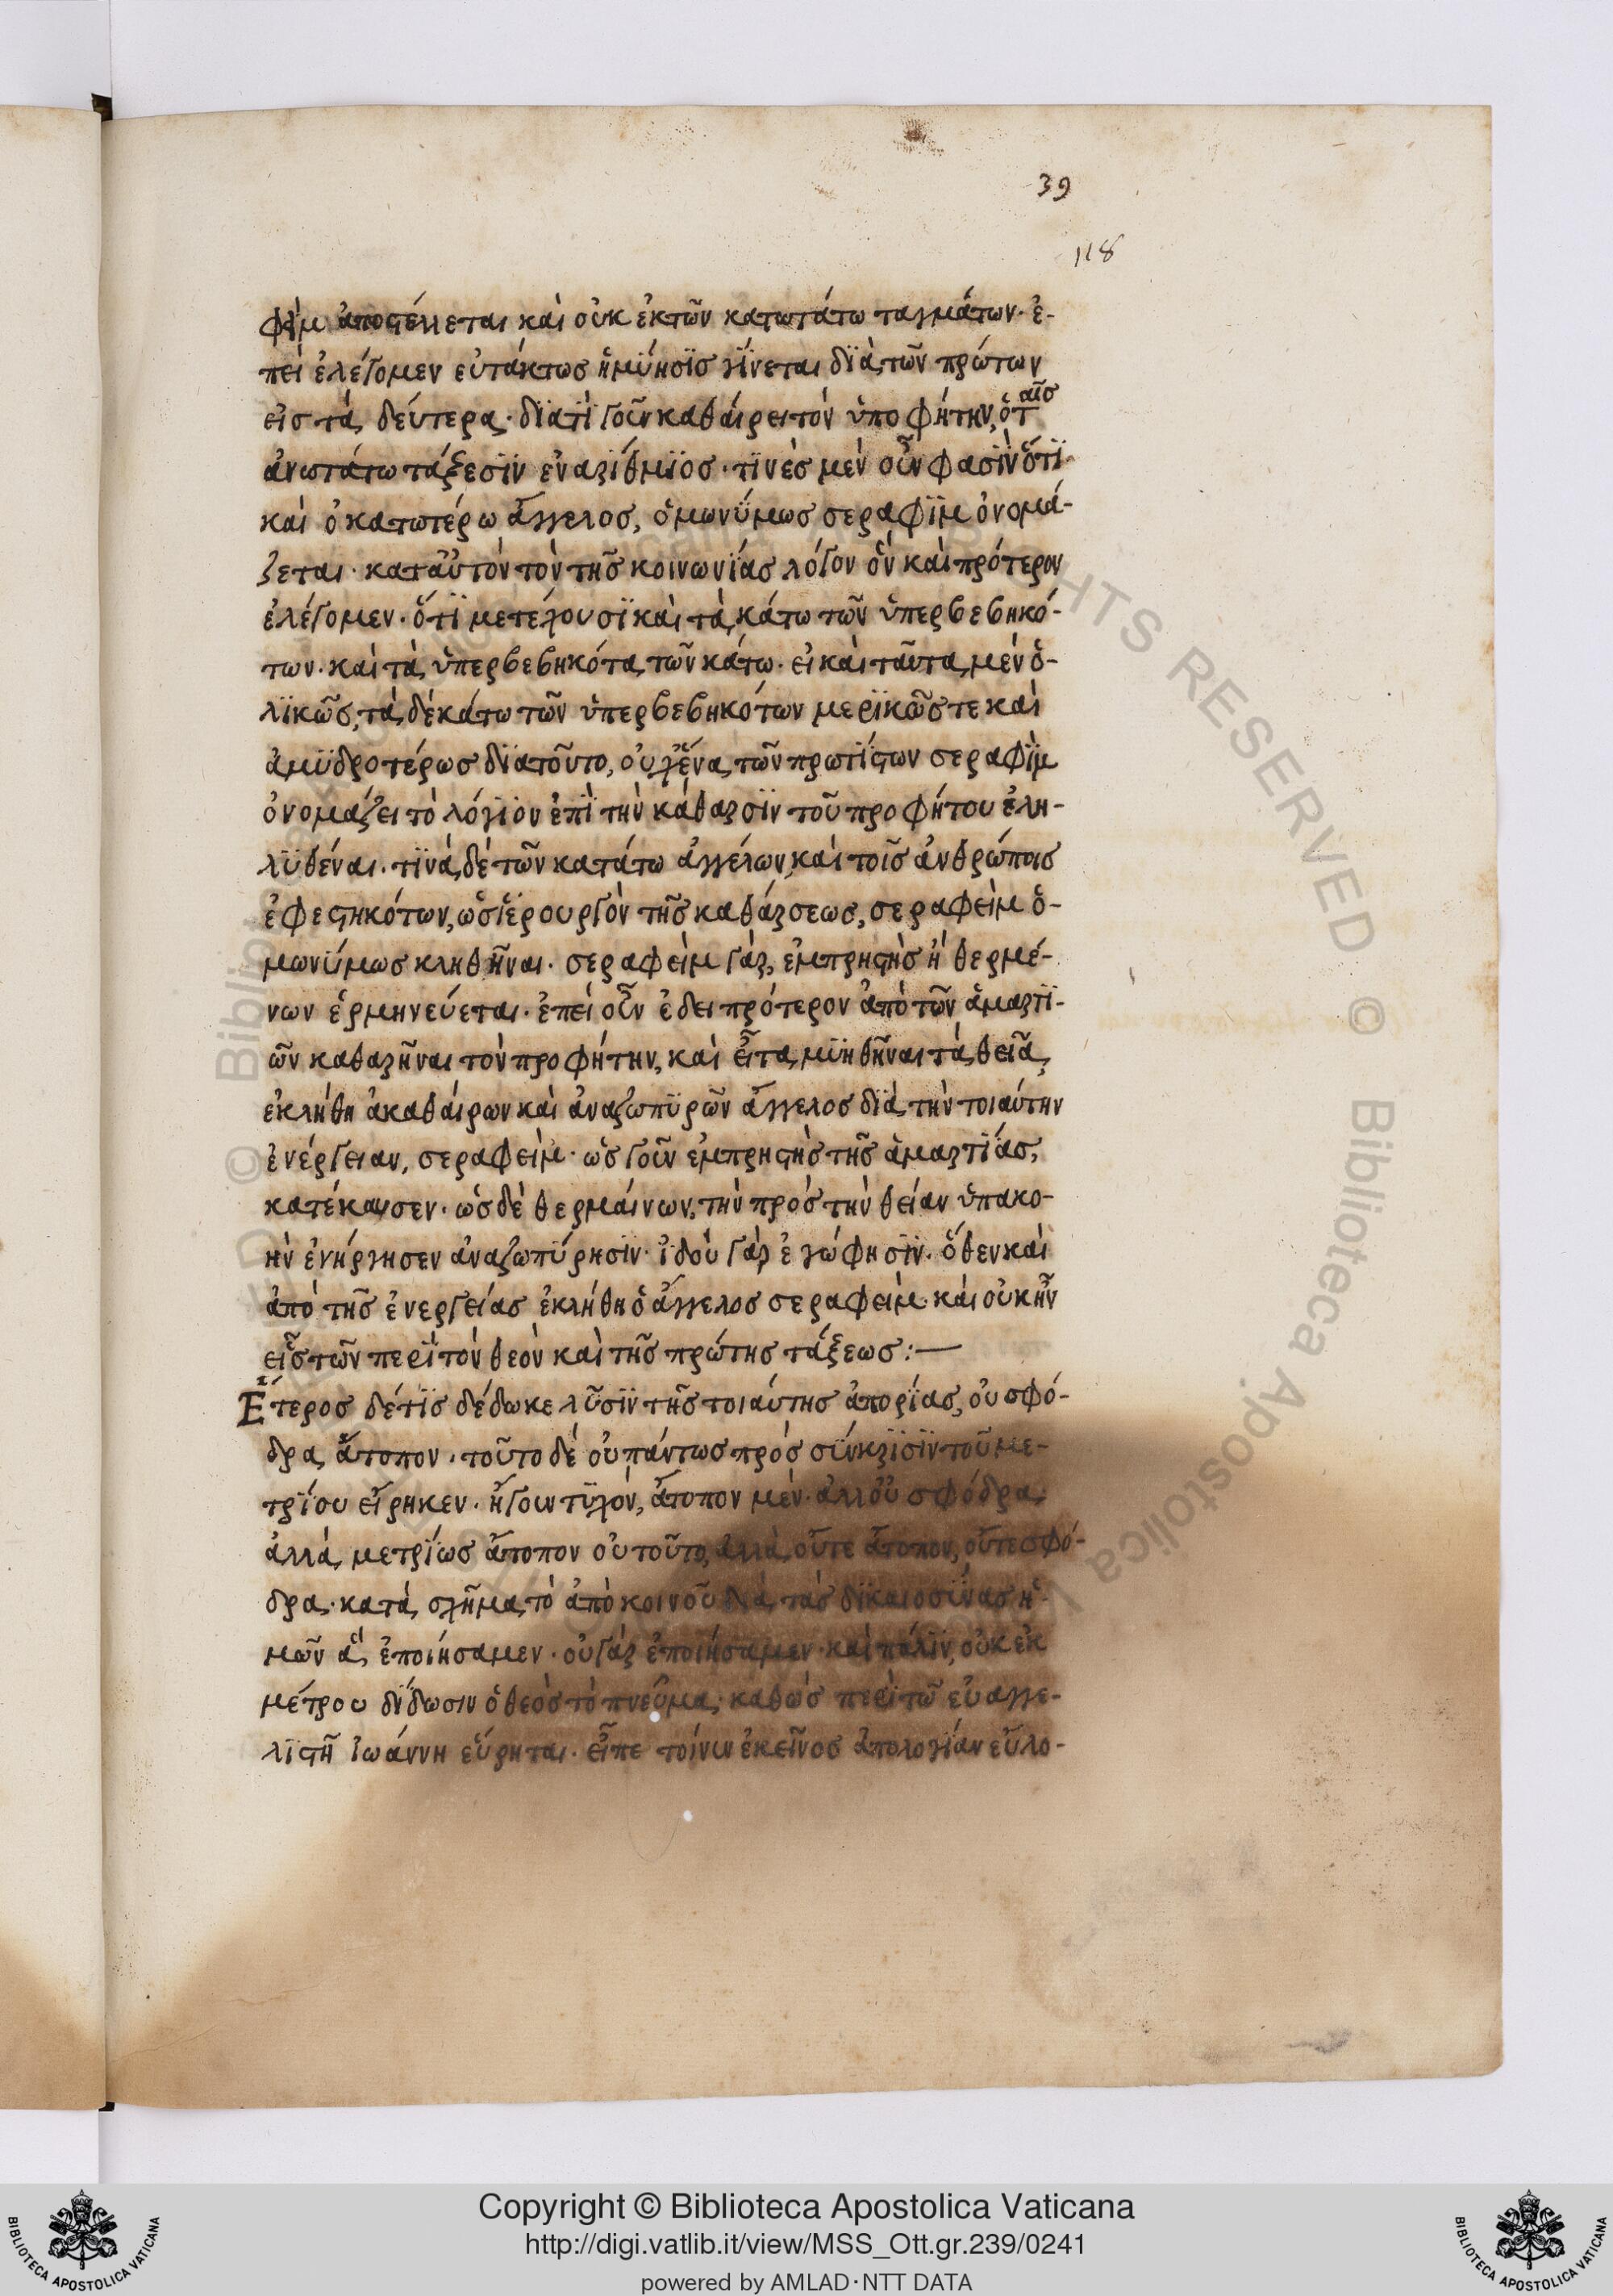 39
118
φὶμ ἀποστέλλεται καὶ οὐκ ἐκτῶν κατωτάτω ταγμάτων· ἐ-
πεὶ ἐλέγομεν εὐτάκτως ἡμύησϊς γίνεται δϊὰ τῶν πρώτων
εἰς τὰ δεύτερα· δϊατί γοῦν καθαίρει τὸν ὑποφήτην, ὁ ταῖς
ἀνωτάτω τάξεσϊν ἐναρίθμϊος· τϊνὲς μὲν οὖν φασϊν ὅτϊ
καὶ ὁ κατωτέρω ἄγγελος, ὁμωνύμως σεραφὶμ ὀνομά-
ζεται· κατ' αὐτὸν τὸν τῆς κοινωνίας λόγον ὃν καὶ πρότερον
ἐλέγομεν· ὅτϊ μετέχουσϊ καὶ τὰ κάτω τῶν ὑπερβεβηκό-
των· καὶ τὰ ὑπερβεβηκότα τῶν κάτω· εἰ καὶ ταῦτα μὲν ὁ-
λϊκῶς, τὰ δὲ κάτω τῶν ὑπερβεβηκότων μερϊκῶς τε καὶ
ἀμϋδροτέρως διατοῦτο, οὐχ ἕνα τῶν πρωτίστων σεραφὶμ
ὀνομάζει τὸ λόγϊον ἐπὶ τὴν κάθαρσϊν τοῦ προφήτου ἐλη-
λϋθέναι· τϊνὰ δὲ τῶν κατάτω ἀγγέλων, καὶ τοῖς ἀνθρώποις
ἐφεστηκότων, ὡς ἱερουργὸν τῆς καθάρσεως, σεραφεὶμ ὁ-
μωνύμως κληθῆναι· σεραφεὶμ γὰρ, ἐμπρηστὴς ἢ θερμέ-
νων ἑρμηνεύεται· ἐπεὶ οὖν ἔδει πρότερον ἀπὸ τῶν ἁμαρτϊ-
ῶν καθαρῆναι τὸν προφήτην, καὶ εἶτα μϋηθῆναι τὰ θεῖα,
ἐκλήθη ὁ καθαίρων καὶ ἀναζωπϋρῶν ἄγγελος δϊὰ τὴν τοιαύτην
ἐνέργειαν, σεραφεὶμ· ὡς γοῦν ἐμπρηστὴς τῆς ἁμαρτίας,
κατέκαυσεν· ὡς δὲ θερμαίνων, τὴν πρὸς τὴν θείαν ὑπακο-
ὴν ἐνήργησεν ἀναζωπύρησϊν· ἰδοὺ γὰρ ἐγώ φησϊν· ὅθεν καὶ
ἀπὸ τῆς ἐνεργείας ἐκλήθη ὁ ἄγγελος σεραφεὶμ· καὶ οὐκ ἦν
εἷς τῶν περὶ τὸν θεὸν καὶ τῆς πρώτης τάξεως:—
Ἕτερος δέ τϊς δέδωκε λῦσϊν τῆς τοιαύτης ἀπορίας, οὐ σφό-
δρα ἄτοπον· τοῦτο δὲ οὐ πάντως πρὸς σύγκρϊσϊν τοῦ με-
τρίου εἴρηκεν· ἤγουν τϋχὸν, ἄτοπον μὲν· ἀλλ' οὐ σφόδρα,
ἀλλὰ μετρίως ἄτοπον οὐ τοῦτο, ἀλλὰ οὔτε ἄτοπον, οὔτε σφό-
δρα· κατὰ σχῆμα τὸ ἀπὸ κοινοῦ διὰ τὰς δϊκαιοσύνας ἡ-
μῶν ἃς ἐποιήσαμεν· οὐ γὰρ ἐποιήσαμεν· καὶ πάλϊν, οὐκ ἐκ
μέτρου δίδωσιν ὁ θεὸς τὸ πνεῦμα· καθὼς περὶ τῷ εὐαγγε-
λϊστῇ ἰωάννη εὕρηται· εἶπε τοίνυν ἐκεῖνος ἀπολογίαν εὔλο-
Copyright © Biblioteca Apostolica Vaticana
http://digi.vatlib.it/view/MSS_Ott.gr.239/0241
powered by AMLAD·NTT DATA
BIBLIOTECA APOSTOLICA VATICANA
BIBLIOTECA APOSTOLICA VATICANA